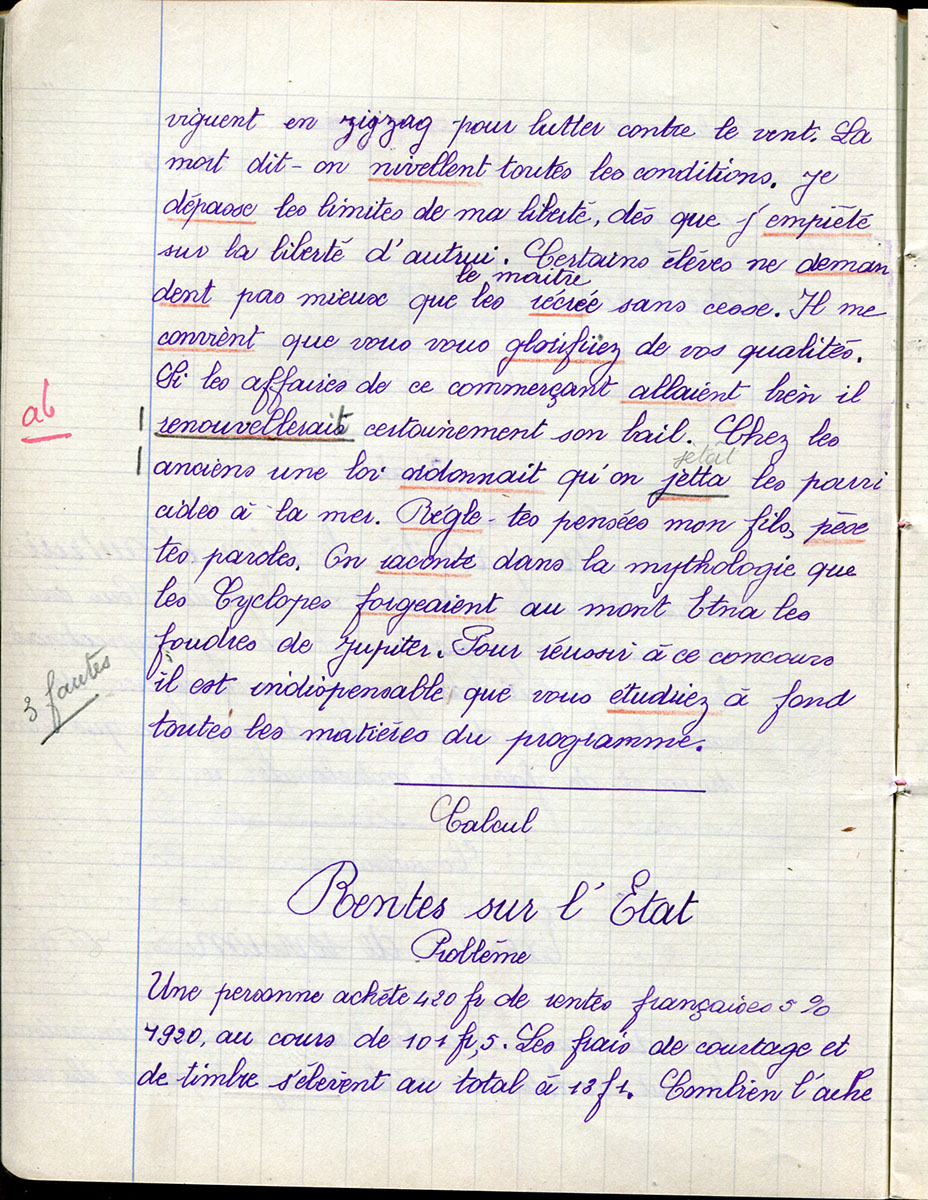 viguent en zigzag pour lutter contre le vent. La
mort dit-on nivellent toutes les conditions. Je
dépasse les limites de ma liberté, dès que j'empiète
sur la liberté d'autrui. Certains élèves ne deman
le maître
dent pas mieux que les récrée sans cesse. Il me
convient que vous vous glorifiiez de vos qualités.
Si les affaires de ce commerçant allaient bien il
ab
renouvellerait certainement son bail. Chez les
jetât
anciens une loi ordonnait qu'on jetta les parri
cides à la mer. Règle-tes pensées mon fils, pèse
tes paroles. On raconte dans la mythologie que
les Cyclopes forgeaient au mont Etna les
foudres de Jupiter. Pour réussir à ce concours
3 fautes
il est indispensable que vous étudiiez à fond
toutes les matières du programme.
Calcul
Rentes sur l'État
Problème
Une personne achète 420 fr de rentes françaises 5%
1920, au cours de 101 fr,5. Les frais de courtage et
de timbre s'élèvent au total à 13 f1. Combien l'ache